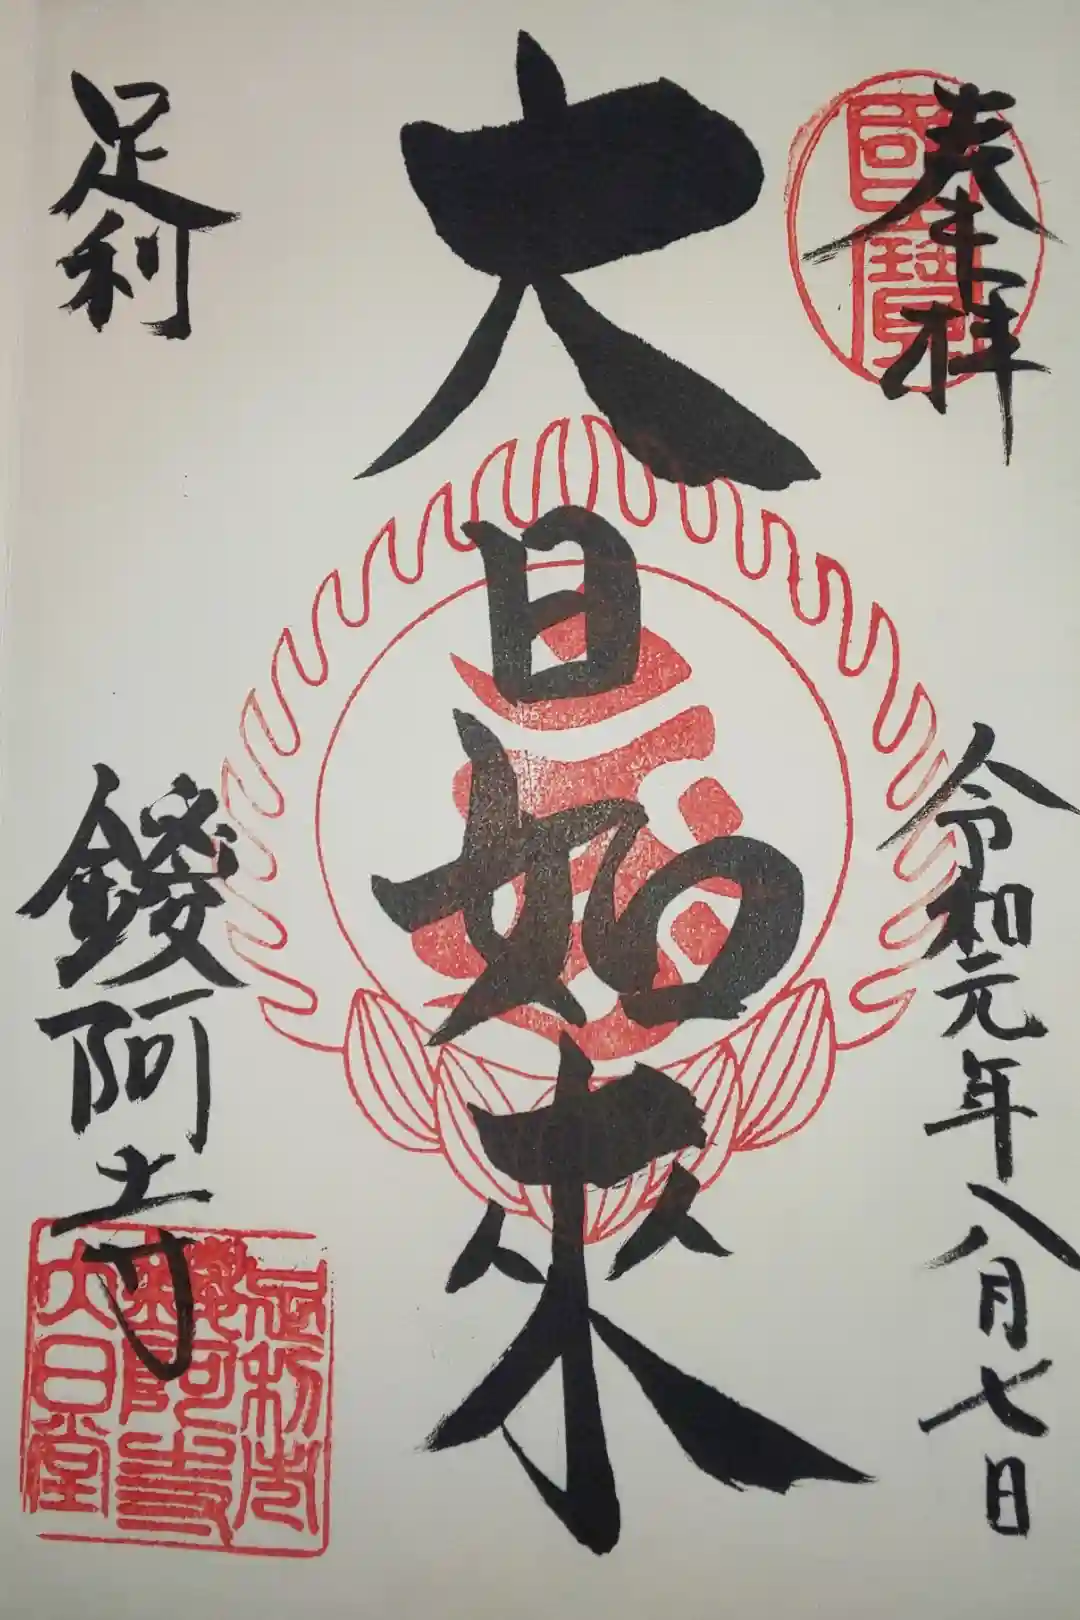 奉拝
國寶
令和元年八月七日
大日如來
足利
鑁阿寺
足利市
鑁阿寺
大日堂